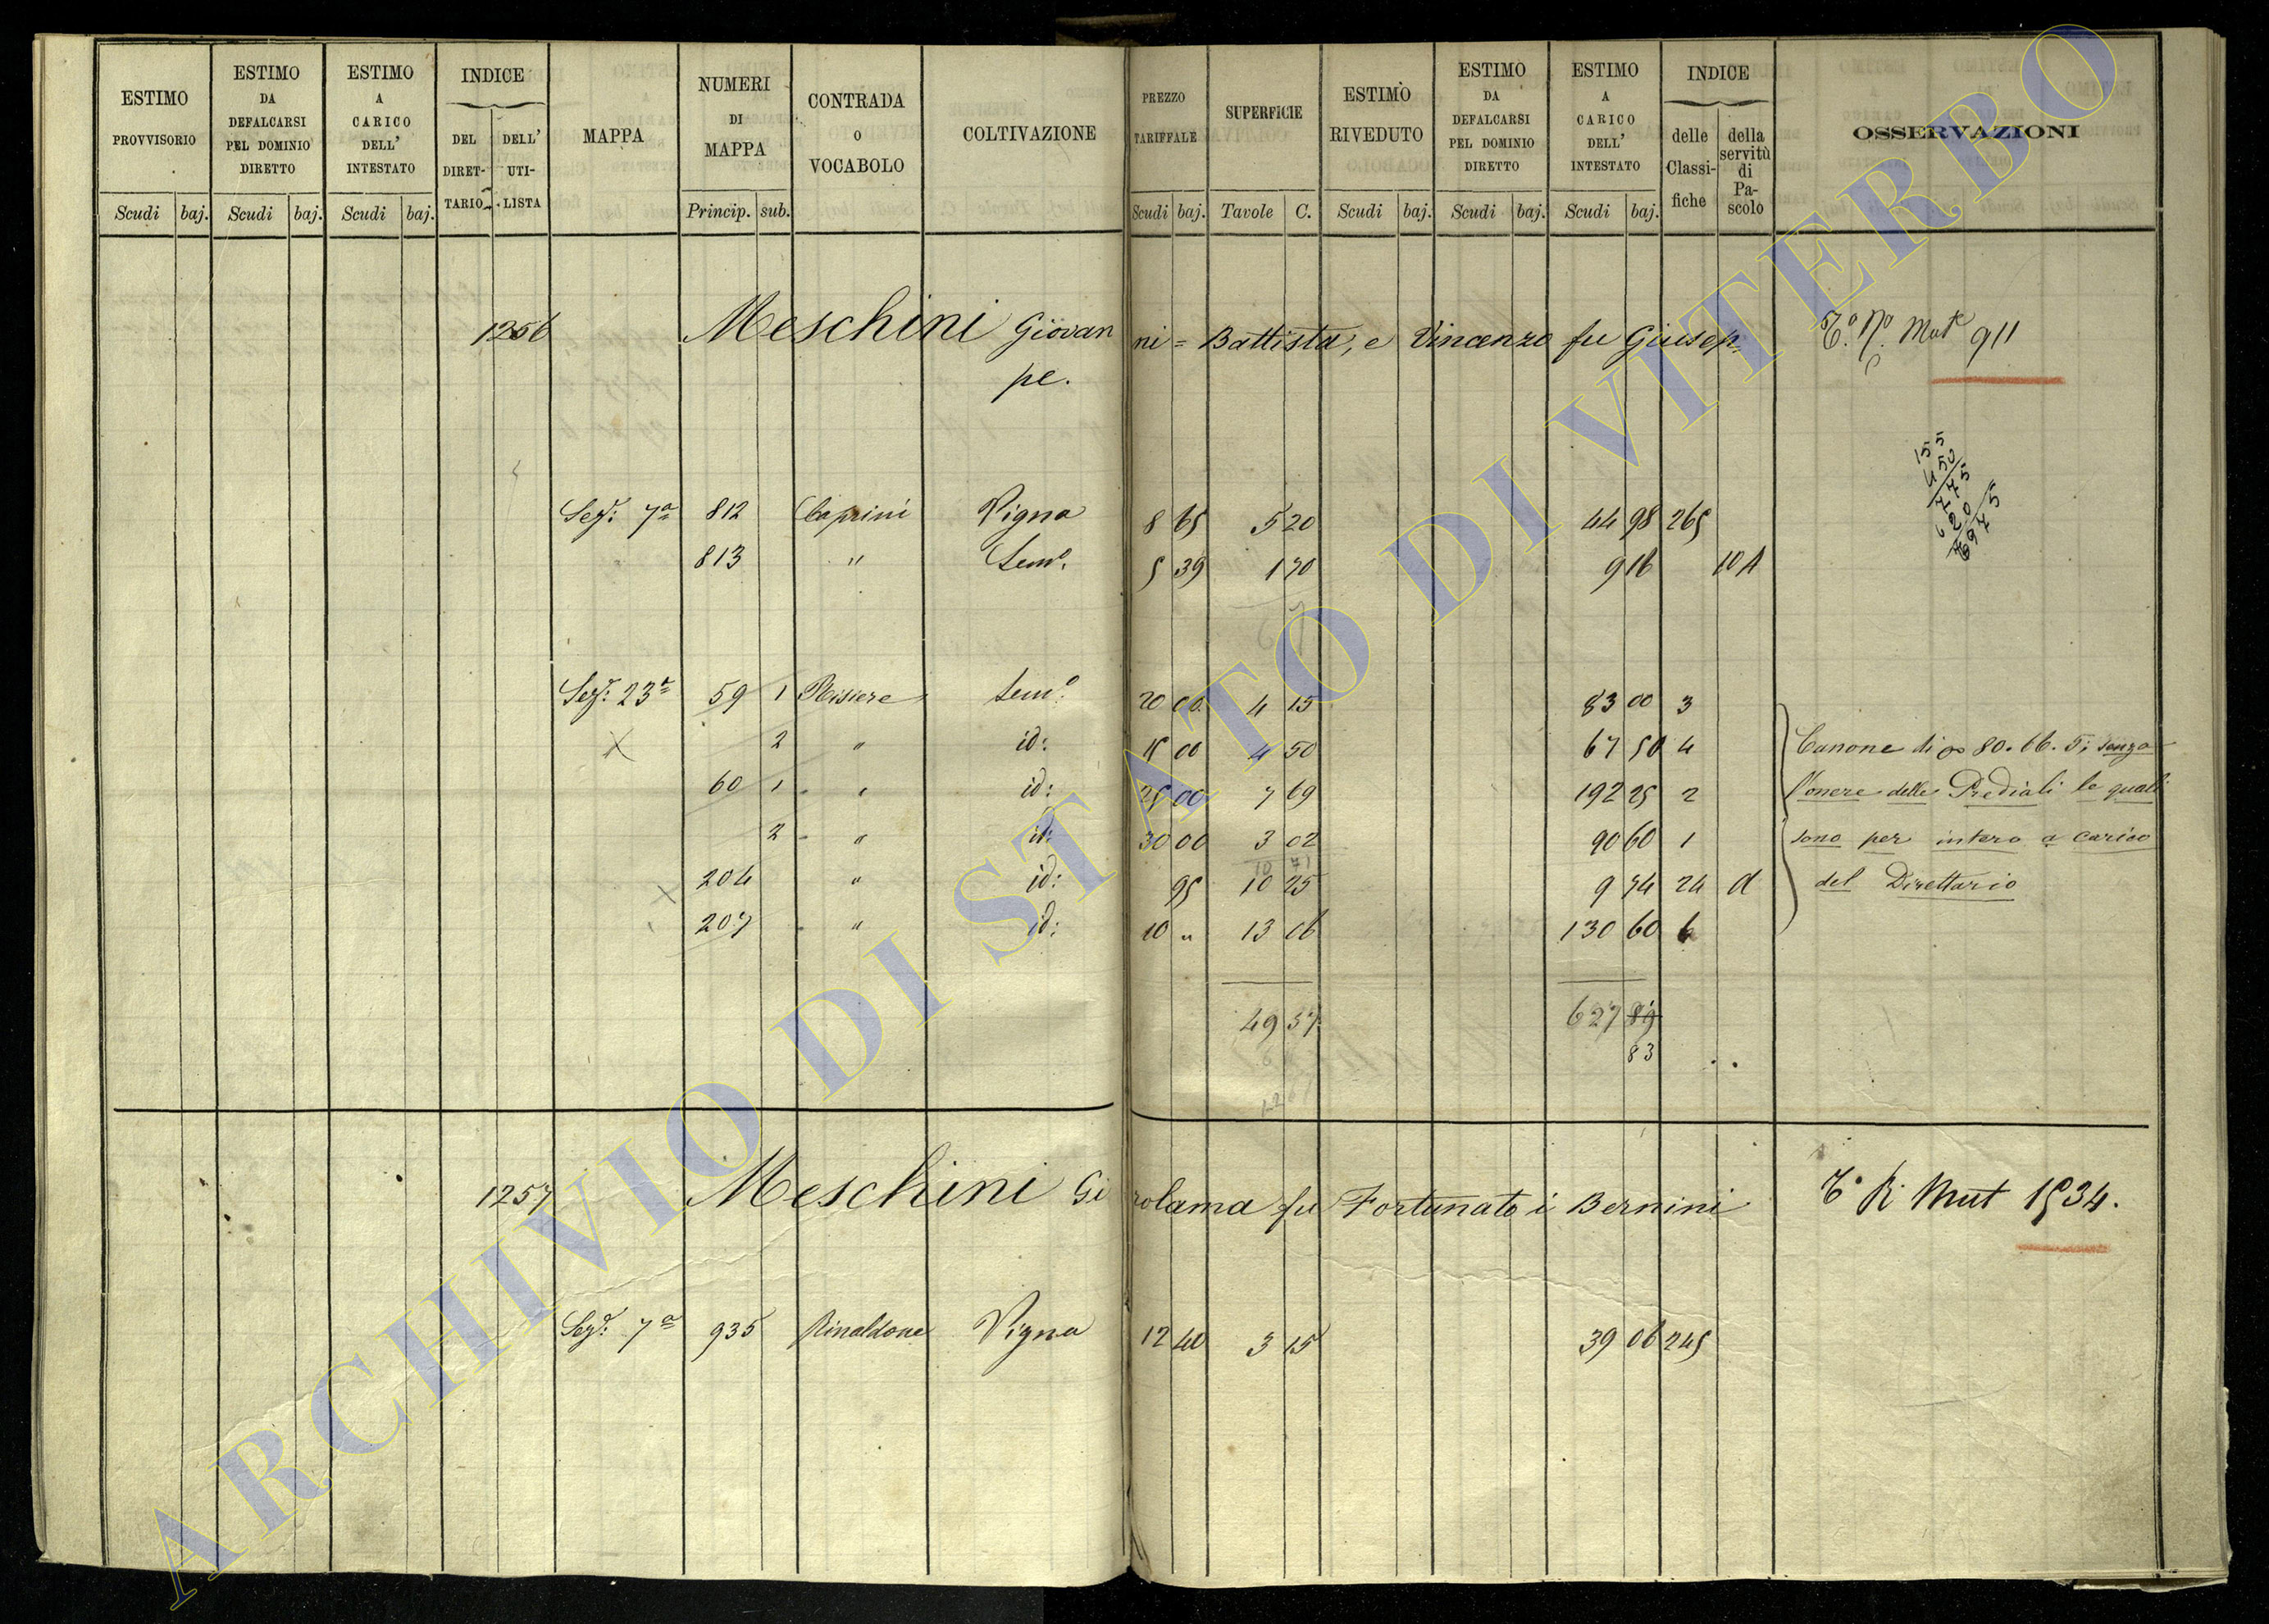 ESTIMO PROVVISORIO
Scudi baj.
ESTIMO DA DEFALCARSI PEL DOMINIO DIRETTO
Scudi baj.
ESTIMO A CARICO DELL' INTESTATO
Scudi baj.
INDICE
DEL DIRET-TARIO
DELL' UTI-LISTA
MAPPA
NUMERI DI MAPPA
Princip. sub.
CONTRADA O VOCABOLO
COLTIVAZIONE
PREZZO TARIFFALE
Scudi baj.
SUPERFICIE
Tavole C.
ESTIMO RIVEDUTO
Scudi baj.
ESTIMO DA DEFALCARSI PEL DOMINIO DIRETTO
Scudi baj.
ESTIMO A CARICO DELL' INTESTATO
Scudi baj.
INDICE
delle Classi-fiche
della servitù di Pa-scolo
OSSERVAZIONI
1256 Meschini Giovan ni = Battista, e Vincenzo fu Giusep= Mut 911
pe.
155
450
Sez: 7a 812 Caprini Vigna 8 65 5 20 44 98 265
813 " Sem: 5 39 1 70 9 16 10 A
Sez: 23a 59 1 Risiere Sem: 20 00 4 15 83 00 3
2 " id: 15 00 4 50 67 50 4 Canone di 80. 66. 5; senza
60 1 " id: 25 00 7 69 192 25 2 l'onere delle Prediali le quali
2 " id: 30 00 3 02 90 60 1 sono per intero a carico
204 " id: 95 10 25 9 74 24 A del Direttario
207 " id: 10 " 13 06 130 60 6
49 37 627 89
83
1257 Meschini Gi rolama fu Fortunato i Bernini To R. Mut 1534.
Sez: 7a 935 Rinaldone Vigna 12 40 3 15 39 06 245
ARCHIVIO DI STATO DI VITERBO